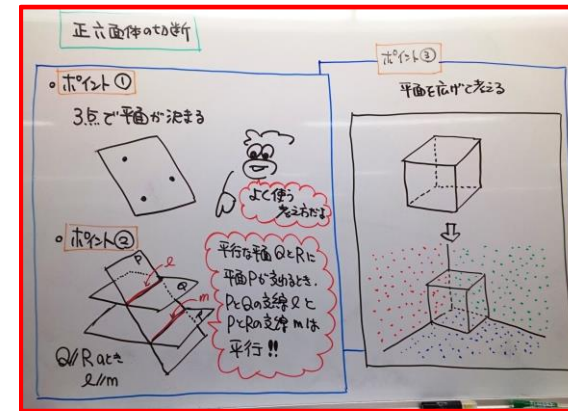 正六面体の切断
ポイント①
3点で平面が決まる
よく使う
考え方だよ
ポイント②
P
Q
R
ℓ
m
Q//Rのとき
ℓ//m
平行な平面QとRに
平面Pが交わるとき、
PとQの交線ℓと
PとRの交線mは
平行!!
ポイント③
平面を広げて考える